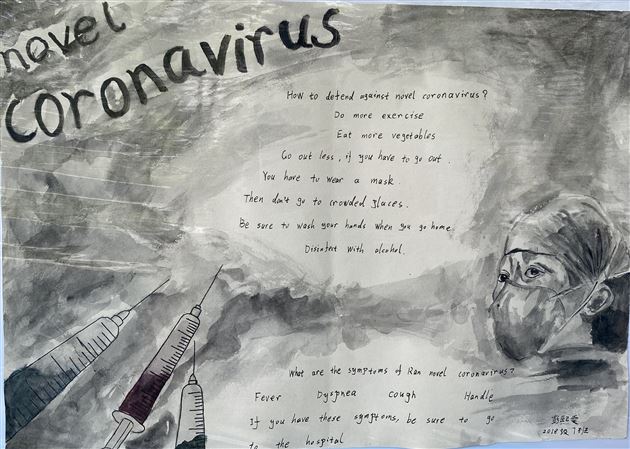 novel
coronavirus
How to defend against novel coronavirus?
Do more exercise
Eat more vegetables
Go out less, if you have to go out.
You have to wear a mask.
Then don't go to crowded places.
Be sure to wash your hands when you go home
Disinfect with alcohol.
What are the symptoms of Ran novel coronavirus?
Fever Dyspnea cough Handle
If you have these symptoms, be sure to go
to the hospital
2018级